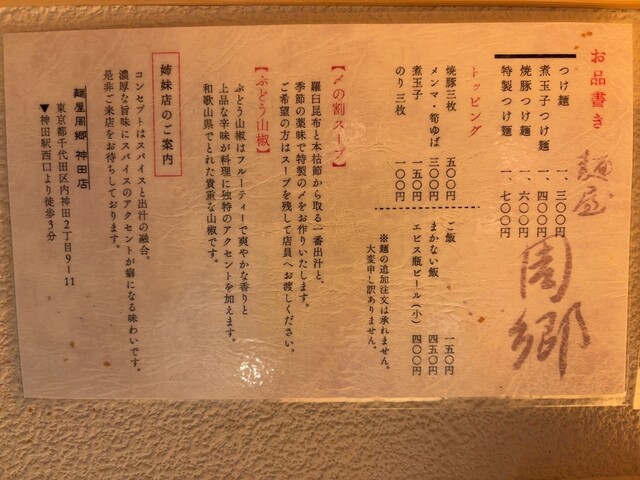 お品書き
麺屋 周郷
つけ麺 一、三〇〇円
煮玉子つけ麺 一、四〇〇円
焼豚つけ麺 一、六〇〇円
特製つけ麺 一、七〇〇円
トッピング
焼豚三枚 五〇〇円
メンマ・筍ゆば 三〇〇円
煮玉子 一五〇円
のり 三枚 一〇〇円
ご飯 一五〇円
まかない飯 四五〇円
エビス瓶ビール(小) 四〇〇円
※麺の追加注文は承れません。
大変申し訳ありません。
【〆の割スープ】
羅臼昆布と本枯節から取る一番出汁と、
季節の薬味で特製の〆をお作りいたします。
ご希望の方はスープを残して店員へお渡しください。
【ぶどう山椒】
ぶどう山椒はフルーティーで爽やかな香りと
上品な辛味が料理に独特のアクセントを加えます。
和歌山県でとれた貴重な山椒です。
姉妹店のご案内
コンセプトはスパイスと出汁の融合。
濃厚な旨味にスパイスのアクセントが癖になる味わいです。
是非ご来店をお待ちしております。
麺屋周郷 神田店
東京都千代田区内神田2丁目9-11
▼神田駅西口より徒歩3分